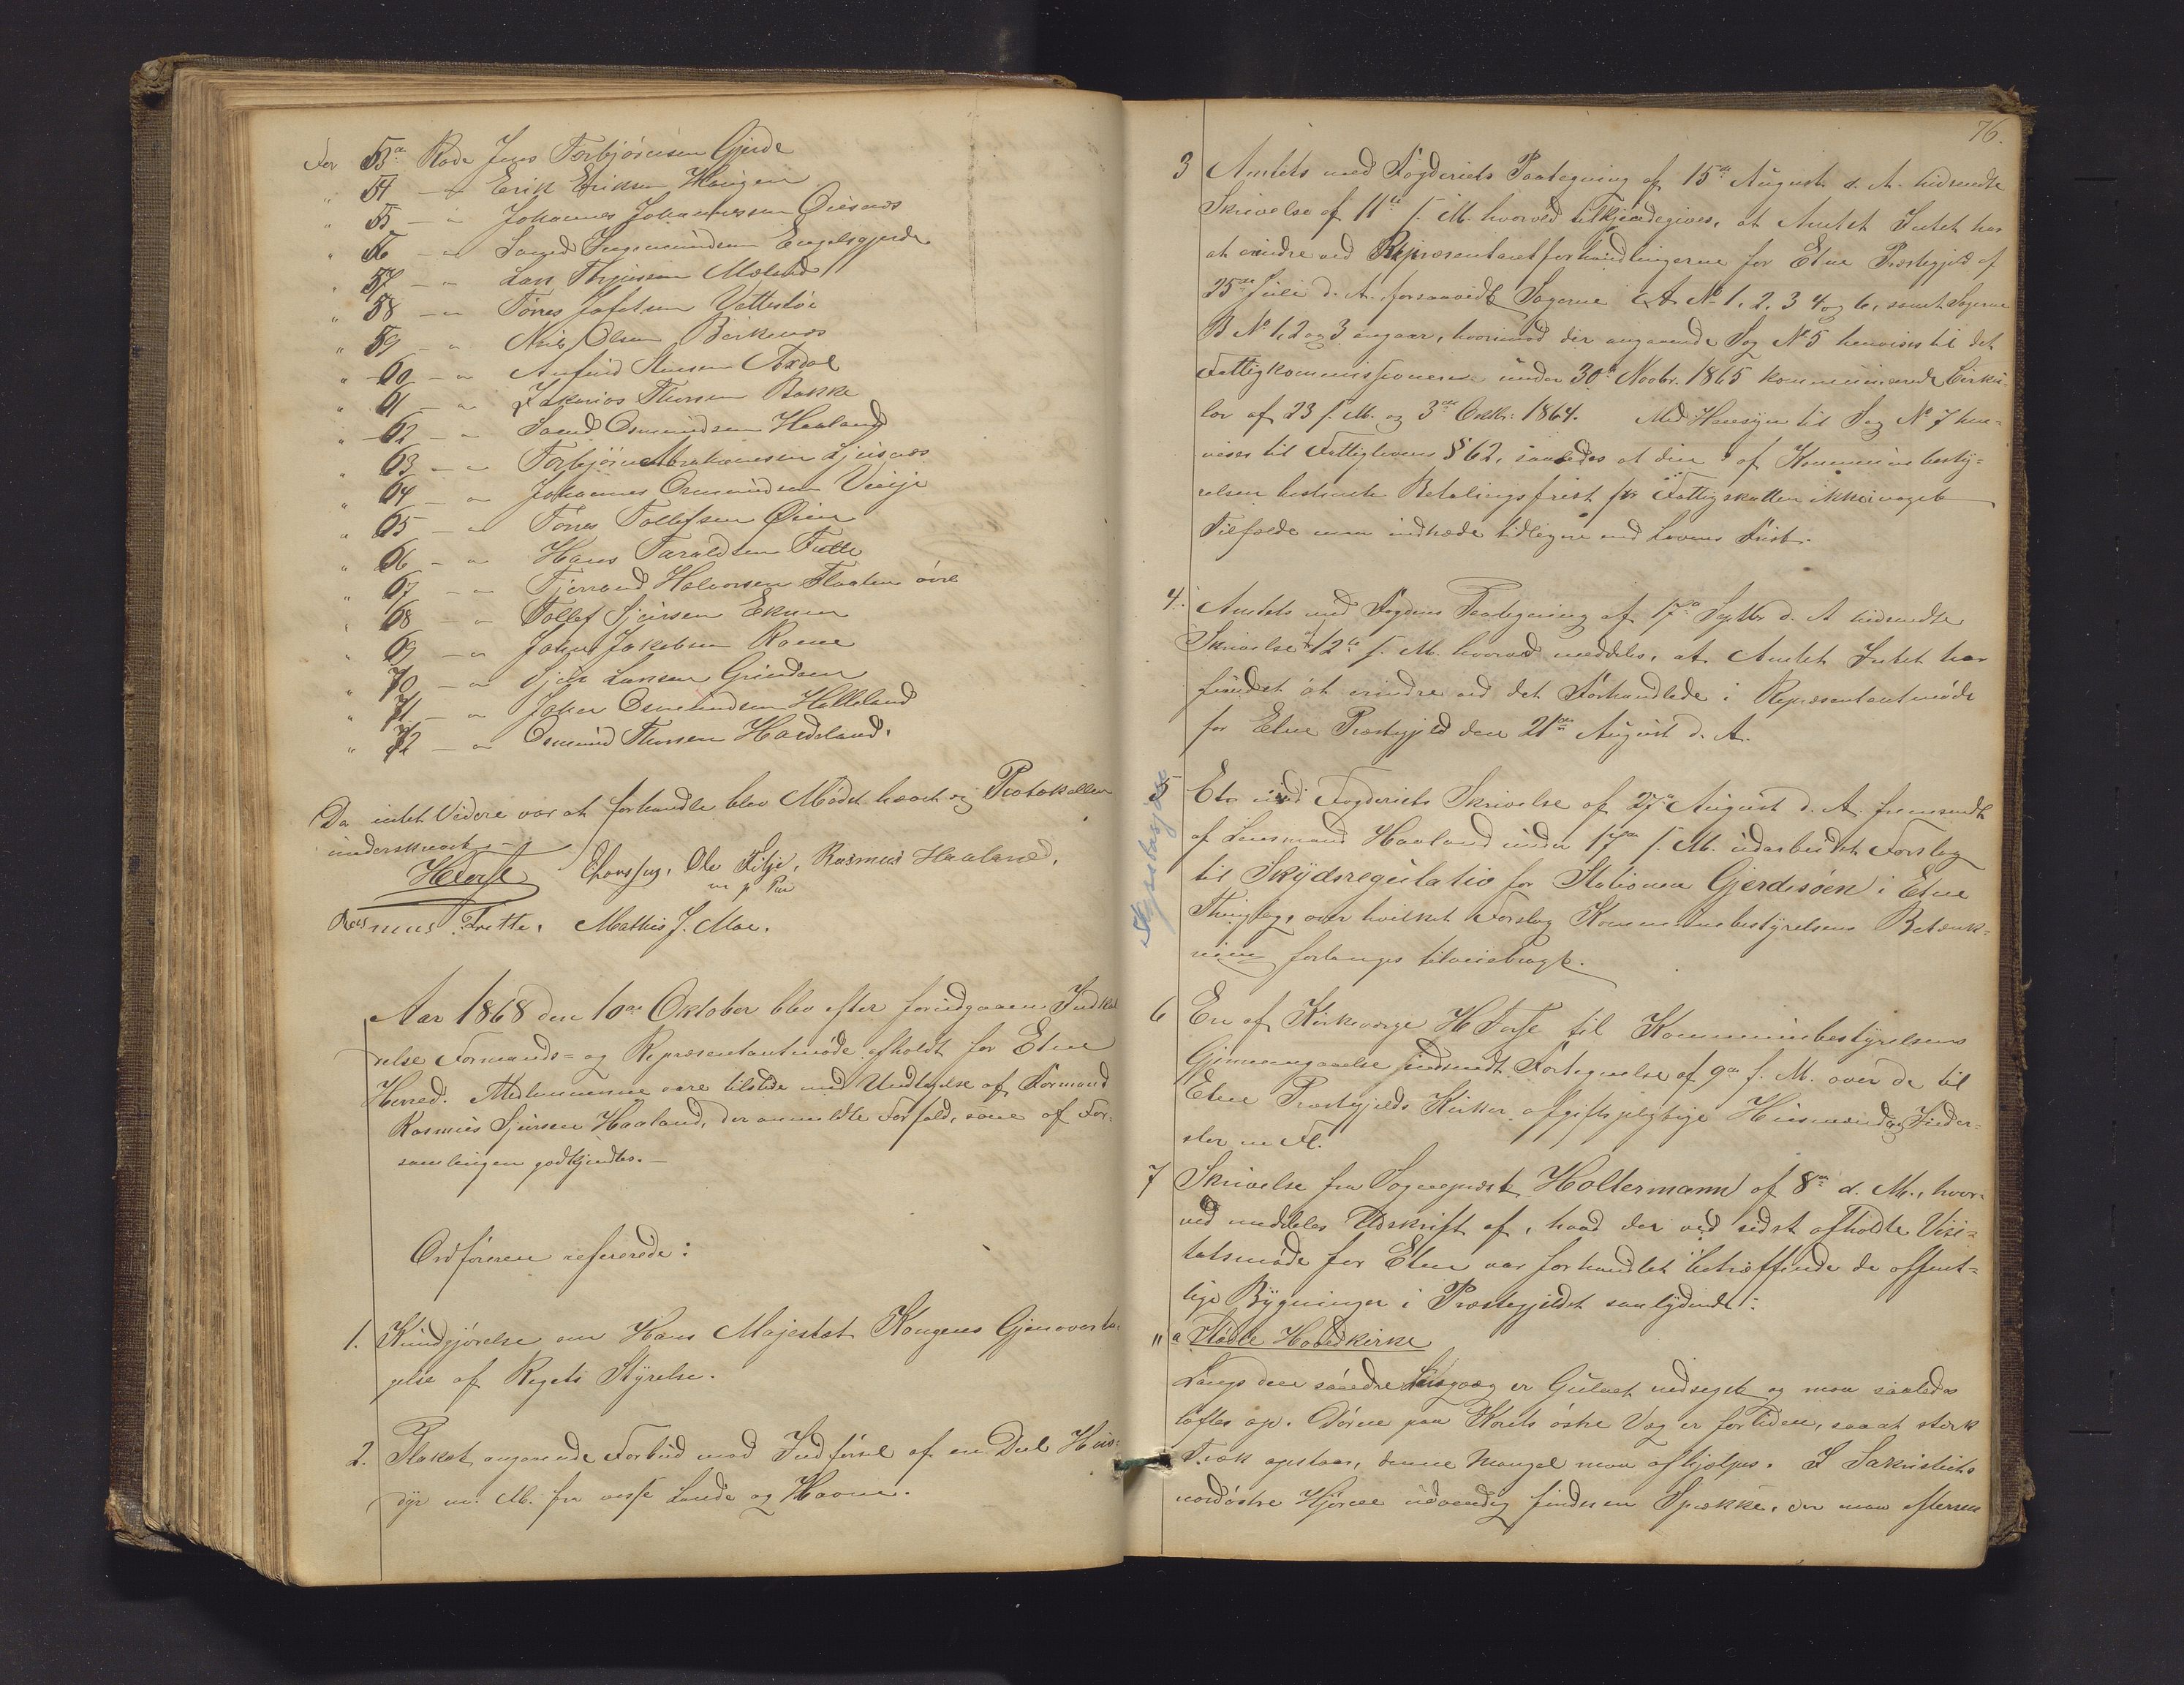 For 53de Rode Jens Torbjørnsen Gjerde
" 54 - " Erik Eriksen Haugen
" 55 - " Johannes Johannessen Øiesnes
" 56 - " Ingemundsen Engelsgjerde
" 57 - " Lars Thorjussen Mæland
" 58 - " Tørres Jofetsen Vattestøe
" 59 - " Nils Olsen Birkenes
" 60 - " Anfind Steensen Axdal
" 61 - " Zakarias Thorsen Bakke
" 62 - " Svend Osmundsen Haaland
" 63 - " Torbjørn Abrahamsen Ljusnes
" 64 - " Johannes Osmundsen Viige
" 65 - " Tørres Tollefsen Øien
" 66 - " Hans Taraldsen Tutle
" 67 - " Tjerrand Halvorsen Flaaten øvre
" 68 - " Tollef Sjursen Ekrene
" 69 - " Johan Jakobsen Rame
" 70 - " Sjur Larsen Grindeim
" 71 - " Johan Osmundsen Halleland
" 72 - " Osmund Thorsen Hardeland.
Da intet Videre var at forhandle blev Mødet hævet og Protokollen
underskreven.
HTorse Ole Silje, Rasmus Haaland,
m p Pen
Rasmus Frette. Mathis J. Moe.
Aar 1868 den 10de Oktober blev efter forudgaaen Indkal
delse Formands- og Repræsentantmøde afholdt for Etne
Herred. Medlemmerne vare tilstede med Undtagelse af Formand
Rasmus Sjursen Haaland, der anmeldte Forfald, som af For-
samlingen godkjendtes.-
Ordføreren refererede:
1. Kundgjørelse om Hans Majestæt Kongens Gjenoverta-
gelse af Rigets Styrelse.
2. Plakat angaaende Forbud mod Indførsel af en Deel Huus-
dyr m. M. fra visse Lande og Havne.
76.
3 Amtets med Fogderiets Paategning af 15de August d. A. hidsendte
Skrivelse af 11te s. M. hvorved tilkjendegives, at Amtet Intet har
at erindre ved Repræsentantforhandlingerne for Etne Præstegjeld af
25de Juli d. A. forsaavidt Sagerne A No 1, 2, 3 4 og 6, samt Sagerne
B No 1, 2 og 3 angaar, hvorimod der angaaende Sag No 5 henvises til det
Fattigkommissionerne under 30te Novbr. 1865 kommunicerede Cirku-
lar af 23 s. M. og 3die Oktbr. 1864. Med Hensyn til Sag No 7 hen-
vises til Fattiglovens § 62, saaledes at den af Kommunebesty-
relsen bestemte Betalingsfrist for Fattigskatten ikke i noget
Tilfælde maa indtræde tidligere end Lovens Frist.
4. Amtets med Fogdens Paategning af 17de Septbr d. A hidsendte
Skrivelse af 12te s. M. hvorved meddeles, at Amtet Intet har
fundet at erindre ved det Forhandlede i Repræsentantmøde
for Etne Præstegjeld den 21de August d. A.
Skydsskafer
5 Et med Fogderiets Skrivelse af 27de August d. A. fremsendt
af Lensmand Haaland under 17de s. M. udarbeidet Forslag
til Skydsregulativ for Stationen Gjerdesøen i Etne
Thinglag, over hvilket Forslag Kommunebestyrelsens Betænk-
ning forlanges tilveiebragt.
6 En af Kirkeværge H Torse til Kommunebestyrelsens
Gjennemgaaelse indsendt Fortegnelse af 9de s. M. over de til
Etne Præstegjelds Kirker afgiftspligtige Husmænd og Inder-
ster m Fl.
7 Skrivelse fra Sognepræst Holtermann af 8de d. M., hvor-
ved meddeles Udskrift af, hvad der ved sidst afholdte Visi-
tatsmøde for Etne var forhandlet betræffende de offent-
lige Bygninger i Præstegjeldet saalydende:
" a Stødle Hovedkirke
Langs den søndre Langvæg er Gulvet nedseget og maa saaledes
løftes op. Dørene paa Korets østre Væg er for liden, saa at sterk
Træk opstaar, denne Mangel maa afhjælpes. I Sakristiets
nordøstre Hjørne udvendig findes en Sprække, der maa eftersees